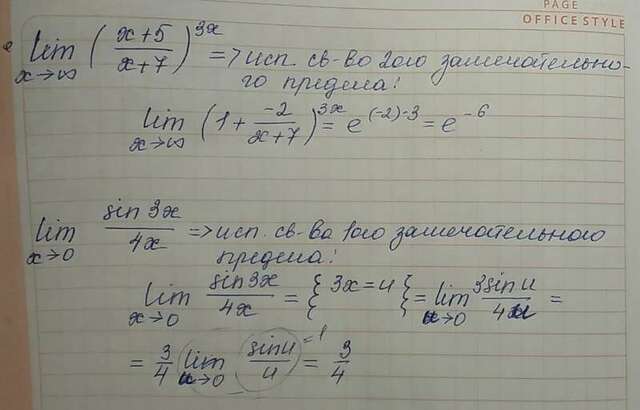 PAGE
OFFICE STYLE
lim x→∞ (x+5 / x+7)^3x => исп. св-во 2ого замечательно-
го предела:
lim x→∞ (1 + -2 / x+7)^3x = e^(-2)·3 = e^-6
lim x→0 sin 3x / 4x => исп. св-ва 1ого замечательного
предела:
lim x→0 sin 3x / 4x = { 3x = u } = lim u→0 3 sin u / 4u =
= 3/4 lim u→0 sin u / u = 1 = 3/4